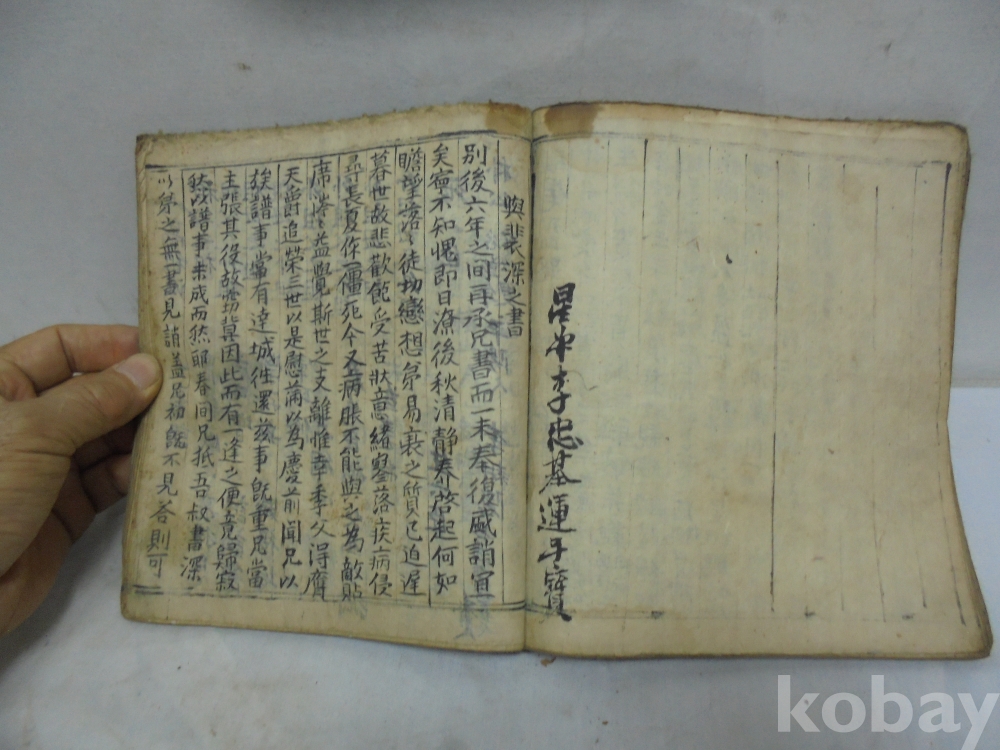 星州李忠基運子寶
與裴深之書
別後六年之間再承兄書而一未奉復感誚宜
矣窅不知愧即日潦後秋清靜養啓起何如
瞻望落落徒切戀想弟易衰之質已迫遲
暮世故悲歡飽受苦狀意緒寥落疾病侵
尋長夏作一僵死今又病脹不能與之為敵貼
席涔涔益覺斯世之支離惟幸季父得膺
天爵追榮三世以是慰滿以為慶前聞兄以
族譜事當有達城徃還玆事旣重兄當
主張其役故竊冀因此而有一逢之便竟歸寂
然以譜事未成而然耶春間兄抵吾叔書深
以弟之無一書見誚盖兄初旣不見答則可
kobay